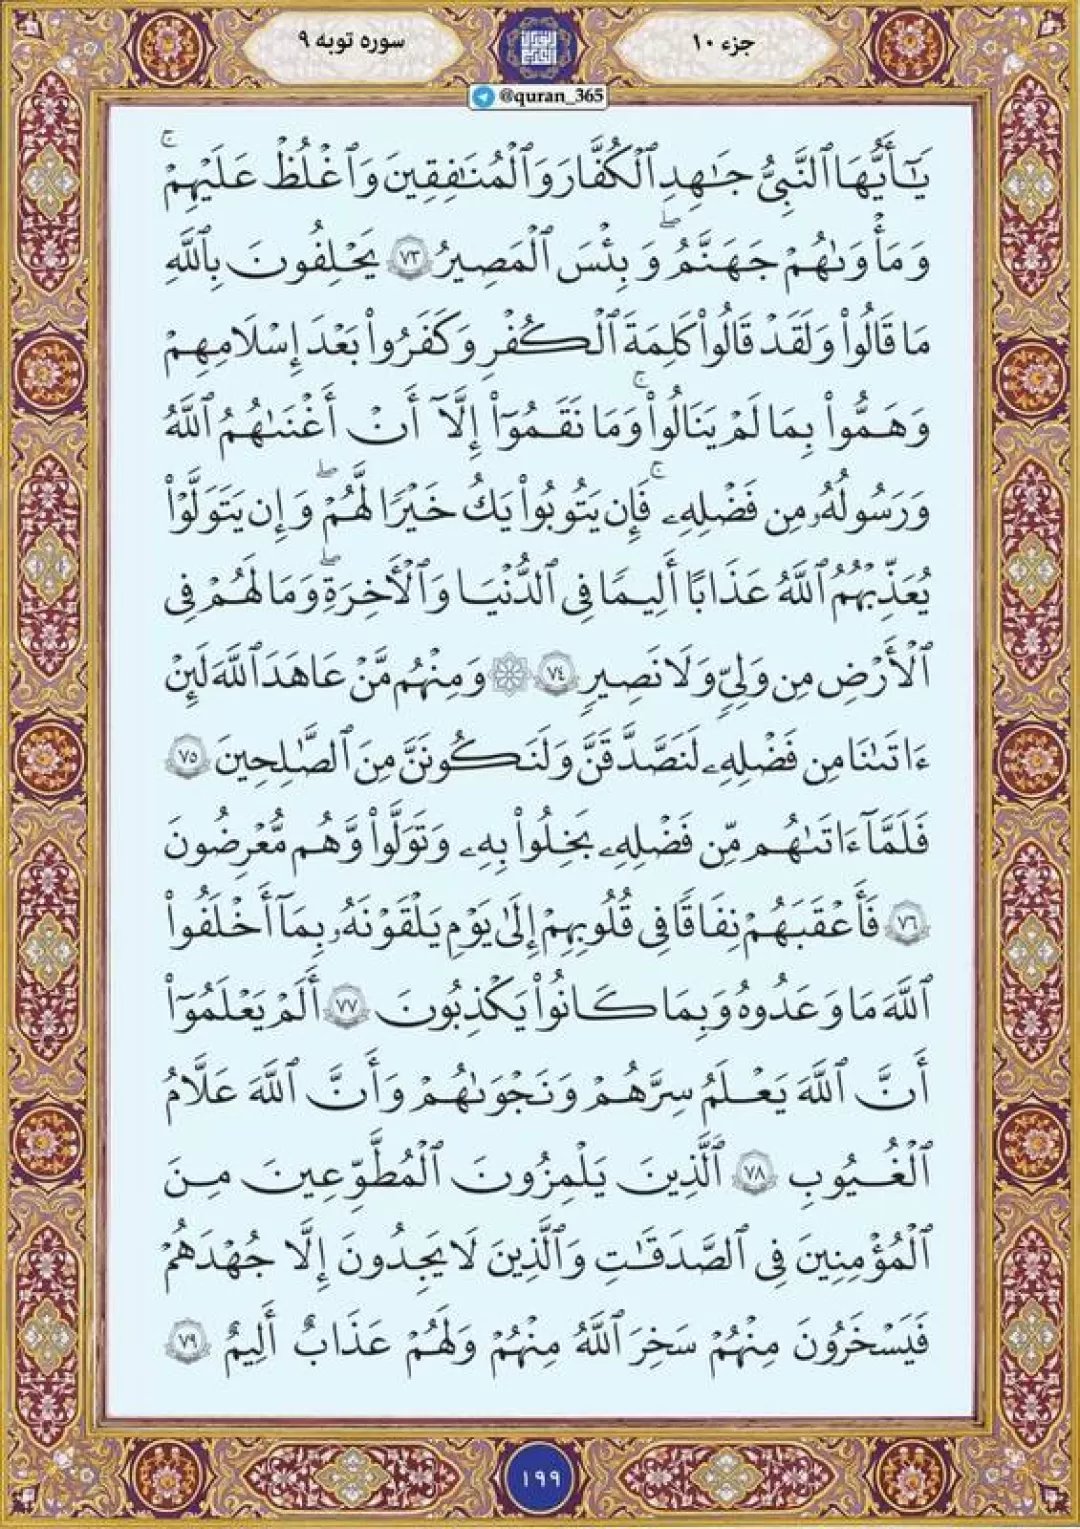 جزء ۱۰
سوره توبه ۹
@quran_365
يَـٰٓأَيُّهَا ٱلنَّبِىُّ جَـٰهِدِ ٱلْكُفَّارَ وَٱلْمُنَـٰفِقِينَ وَٱغْلُظْ عَلَيْهِمْ ۚ
وَمَأْوَىٰهُمْ جَهَنَّمُ ۖ وَبِئْسَ ٱلْمَصِيرُ ۷۳ يَحْلِفُونَ بِٱللَّهِ
مَا قَالُوا۟ وَلَقَدْ قَالُوا۟ كَلِمَةَ ٱلْكُفْرِ وَكَفَرُوا۟ بَعْدَ إِسْلَـٰمِهِمْ
وَهَمُّوا۟ بِمَا لَمْ يَنَالُوا۟ ۚ وَمَا نَقَمُوٓا۟ إِلَّآ أَنْ أَغْنَىٰهُمُ ٱللَّهُ
وَرَسُولُهُۥ مِن فَضْلِهِۦ ۚ فَإِن يَتُوبُوا۟ يَكُ خَيْرًا لَّهُمْ ۖ وَإِن يَتَوَلَّوْا۟
يُعَذِّبْهُمُ ٱللَّهُ عَذَابًا أَلِيمًا فِى ٱلدُّنْيَا وَٱلْأَخِرَةِ ۖ وَمَا لَهُمْ فِى
ٱلْأَرْضِ مِن وَلِىٍّ وَلَا نَصِيرٍ ۷۴ ۞ وَمِنْهُم مَّنْ عَـٰهَدَ ٱللَّهَ لَئِنْ
ءَاتَىٰنَا مِن فَضْلِهِۦ لَنَصَّدَّقَنَّ وَلَنَكُونَنَّ مِنَ ٱلصَّـٰلِحِينَ ۷۵
فَلَمَّآ ءَاتَىٰهُم مِّن فَضْلِهِۦ بَخِلُوا۟ بِهِۦ وَتَوَلَّوا۟ وَّهُم مُّعْرِضُونَ
۷۶ فَأَعْقَبَهُمْ نِفَاقًا فِى قُلُوبِهِمْ إِلَىٰ يَوْمِ يَلْقَوْنَهُۥ بِمَآ أَخْلَفُوا۟
ٱللَّهَ مَا وَعَدُوهُ وَبِمَا كَانُوا۟ يَكْذِبُونَ ۷۷ أَلَمْ يَعْلَمُوٓا۟
أَنَّ ٱللَّهَ يَعْلَمُ سِرَّهُمْ وَنَجْوَىٰهُمْ وَأَنَّ ٱللَّهَ عَلَّـٰمُ
ٱلْغُيُوبِ ۷۸ ٱلَّذِينَ يَلْمِزُونَ ٱلْمُطَّوِّعِينَ مِنَ
ٱلْمُؤْمِنِينَ فِى ٱلصَّدَقَـٰتِ وَٱلَّذِينَ لَا يَجِدُونَ إِلَّا جُهْدَهُمْ
فَيَسْخَرُونَ مِنْهُمْ سَخِرَ ٱللَّهُ مِنْهُمْ وَلَهُمْ عَذَابٌ أَلِيمٌ ۷۹
۱۹۹